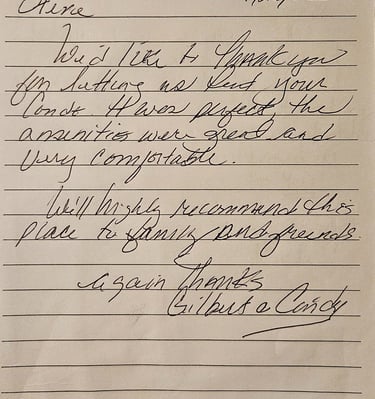 We'd like to thank you
for letting us rent your
Condo It was perfect, the
amenities were great and
Very Comfortable.
Will highly recommend this
place to family and friends.
Again Thanks
Gilbert & Candy